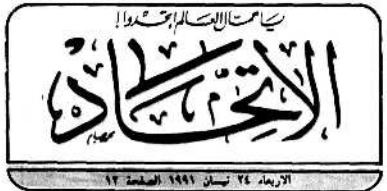 يا عمال العالم اتحدوا!
الاتحاد
الاربعاء ٢٤ نيسان ١٩٩١ الصفحة ١٢